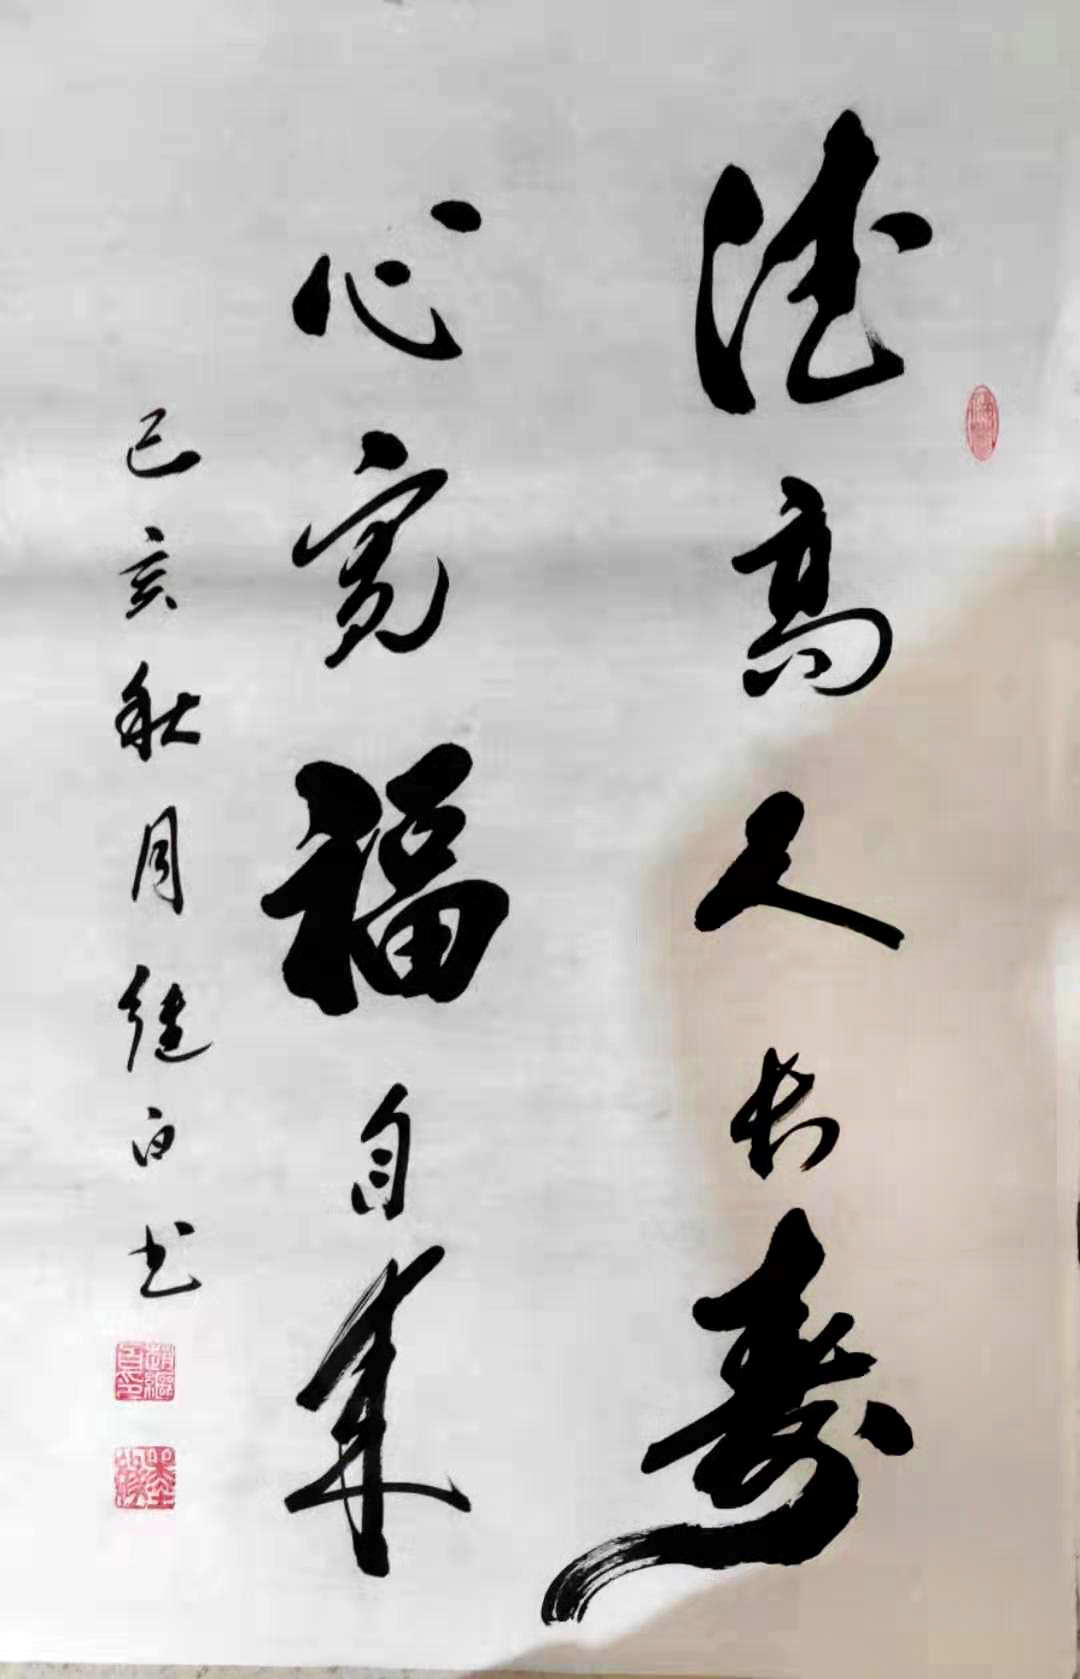 德高人长寿
心宽福自来
己亥秋月继白书